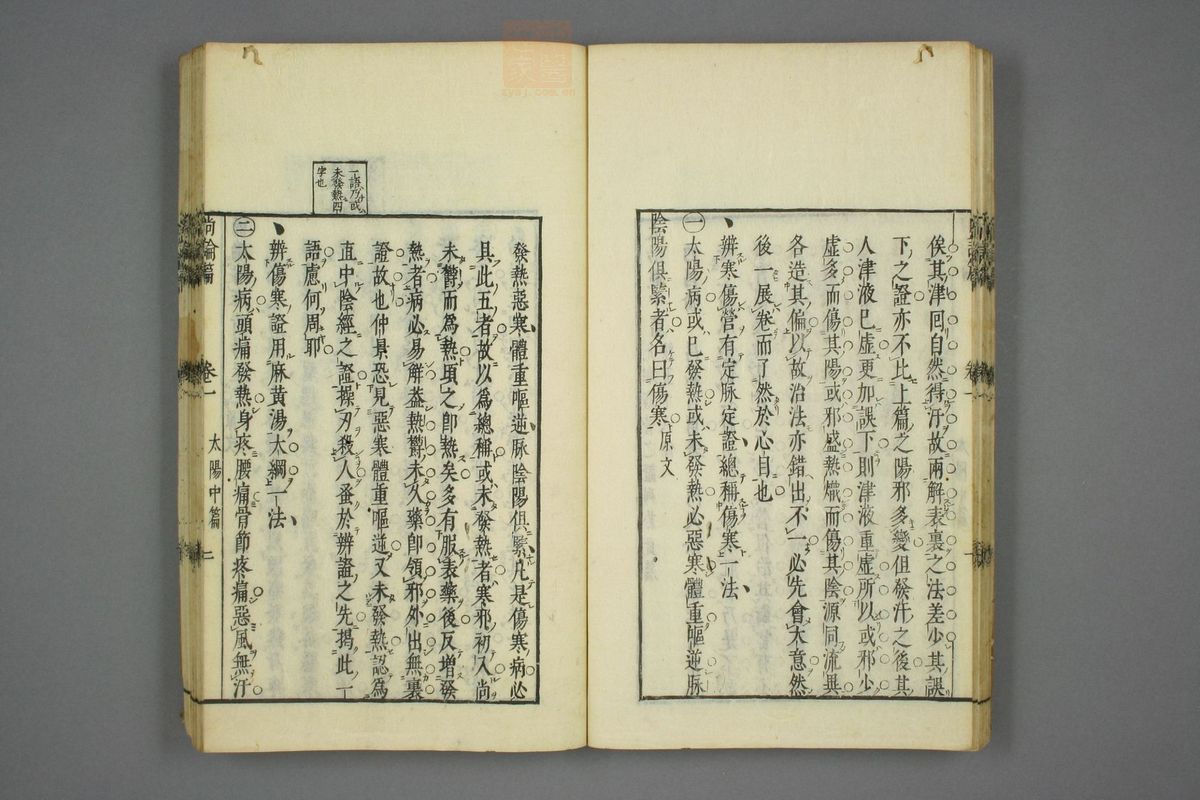 俟其津回自然得汗故兩解表裏之法差少其誤
下之證亦不比上篇之陽邪多變但發汗之後其
人津液已虛更加誤下則津液重虛所以或邪少
虛多而傷其陽或邪盛熱熾而傷其陰源同流異
各造其偏以故治法亦錯出不一必先會大意然
後一展卷而了然於心目也
辨寒傷營有定脉定證總稱傷寒一法
㊀太陽病或已發熱或未發熱必惡寒體重嘔逆脉
陰陽俱緊者名曰傷寒原文
發熱惡寒體重嘔逆脉陰陽俱緊凡是傷寒病必
具此五者故以爲總稱或未發熱者寒邪初入尚
未鬱而爲熱頃之卽熱矣多有服表藥後反增發
熱者病必易解葢熱鬱未久藥卽領邪外出無裏
證故也仲景恐見惡寒體重嘔逆又未發熱認爲
直中陰經之證操刃殺人蚤於辨證之先揭此一
語慮何周耶
辨傷寒證用麻黃湯大綱一法
㊁太陽病頭痛發熱身疼腰痛骨節疼痛惡風無汗
一語乃或
未發熱四
字也
尚論篇
卷一
太陽中篇
二
zysj.com.cn